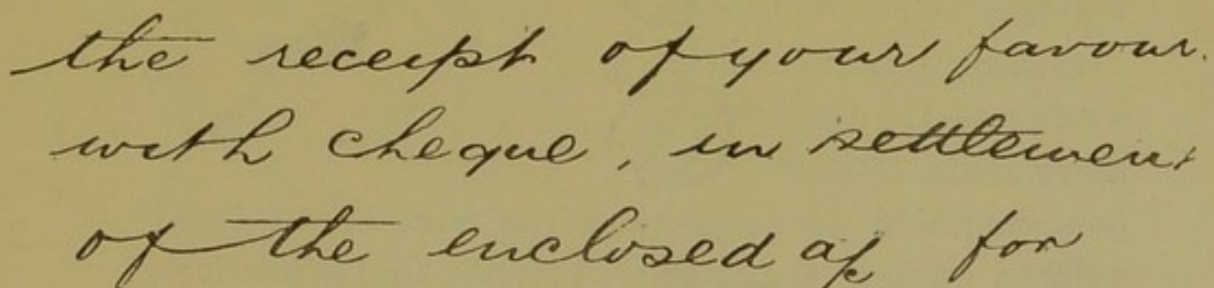 the receipt of your favour.
with cheque, in settlement
of the enclosed a/c for